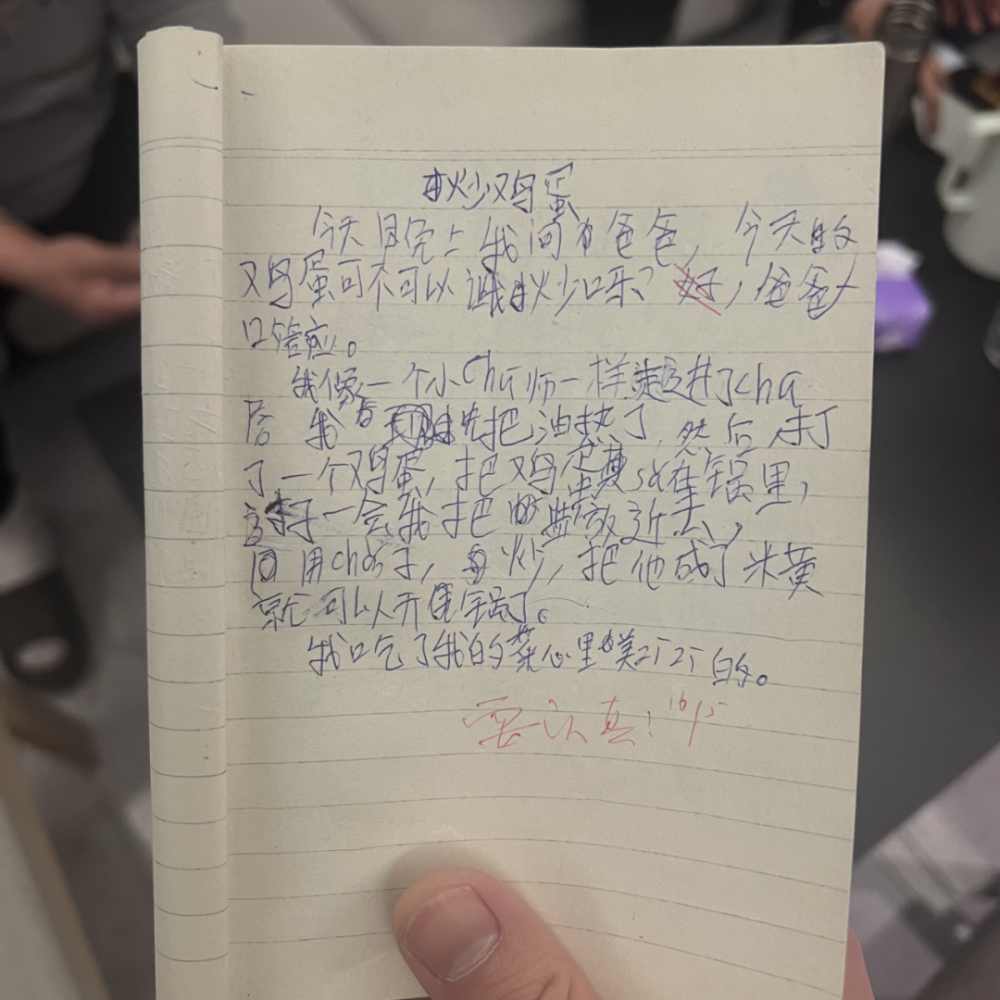 炒鸡蛋
今天晚上我问爸爸，今天的
鸡蛋可不可以让我炒呀？好，爸爸
口答应。
我像一个小Chu师一样走进了chu
房 我先把油热了，然后，打
了一个鸡蛋，把鸡蛋放在锅里，
一会我把盐放进去，
用chǎn子，炒，把他成了米黄
就可以开锅了。
我吃了我的菜心里美滋滋的。
要认真！16/5